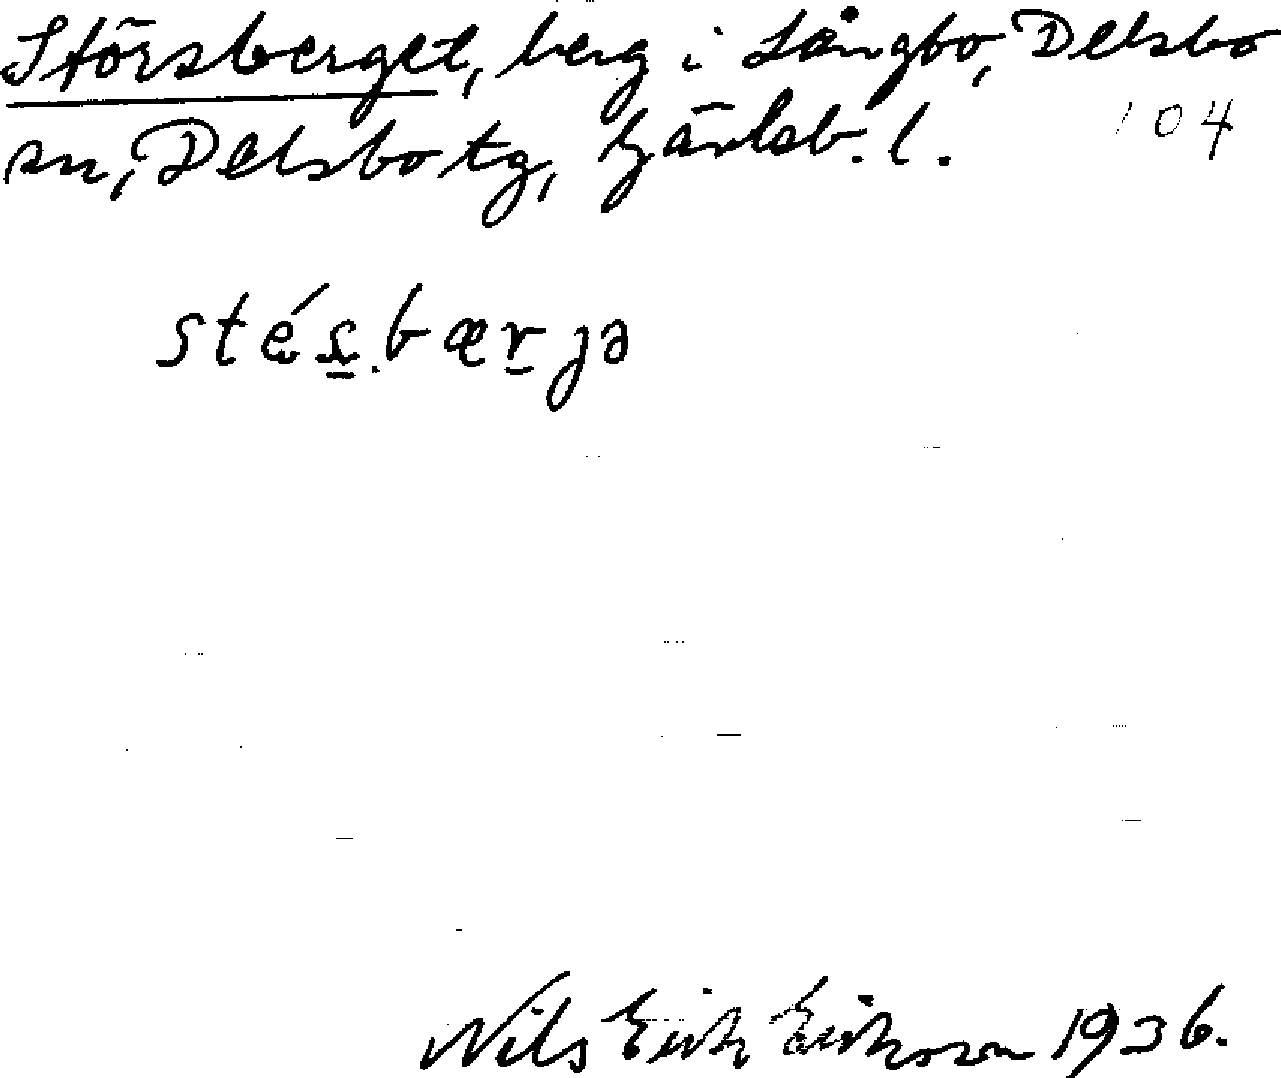 Störsberget, berg i Långbo, Delsbo
sn, Delsbo tg, Gävleb. l.
104
stés̲.bær̲jə
Nils Erik Eriksson 1936.